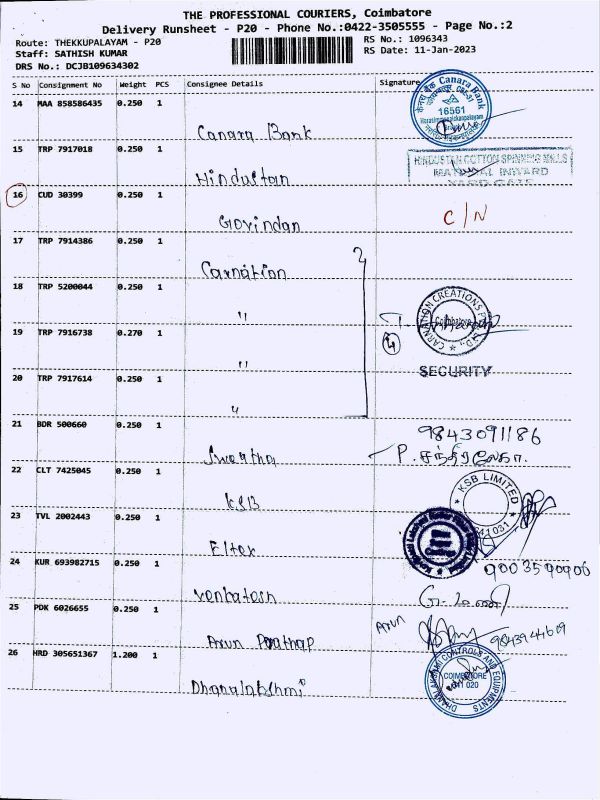 THE PROFESSIONAL COURIERS, Coimbatore
Delivery Runsheet - P20 - Phone No.:0422-3505555 - Page No.:2
Route: THEKKUPALAYAM - P20
RS No.: 1096343
Staff: SATHISH KUMAR
RS Date: 11-Jan-2023
DRS No.: DCJB109634302
S No Consignment No Weight PCS Consignee Details Signature
14 MAA 858586435 0.250 1
Canara Bank
Canara Bank
16561
15 TRP 7917018 0.250 1
Hindustan
HINDUSTAN COTTON SPINNING MILLS
MATERIAL INWARD
16 CUD 30399 0.250 1
Govindan
C/N
17 TRP 7914386 0.250 1
Carnation
18 TRP 5200044 0.250 1
"
CARNATION CREATIONS
Coimbatore
19 TRP 7916738 0.270 1
"
4
20 TRP 7917614 0.250 1
"
SECURITY
21 BDR 500660 0.250 1
Swartha
9843091186
P. சந்திரலேகா.
22 CLT 7425045 0.250 1
KSB
KSB LIMITED
23 TVL 2002443 0.250 1
Eltex
24 KUR 693982715 0.250 1
Venkatesh
9003590906
25 PDK 6026655 0.250 1
Arun Prathap
Arun
26 HRD 305651367 1.200 1
Dhanalakshmi
DHANALAKSHMI CONTROLS AND EQUIPMENTS
COIMBATORE
641 020